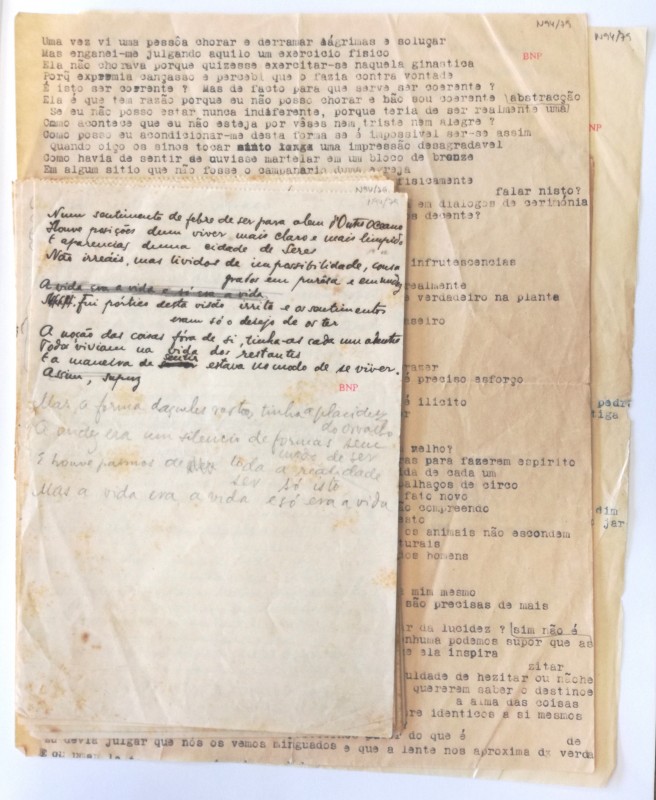 N94/75
N94/75
Uma vez vi uma pessôa chorar e derramar lágrimas e soluçar
Mas enganei-me julgando aquilo um exercicio fisico
BNP
Ela não chorava porque quizesse exercitar-se naquela ginastica
Porq expremia cançasso e percebi que o fazia contra vontade
É isto ser coerente ? Mas de facto para que serve ser coerente ?
Ela é que tem razão porque eu não posso chorar e não sou coerente (abstracção
Se eu não posso estar nunca indiferente, porque teria de ser realmente uma)
Como acontece que eu não esteja por vêses nem triste nem alegre ?
Como posso eu acondicionar-me desta forma se é impossivel ser-se assim
NP
Quando oiço os sinos tocar uma impressão desagradavel
Como havia de sentir se ouvisse martelar em um bloco de bronze
Em algum sitio que não fosse o campanario duma igreja
fisicamente
falar nisto?
em dialogos de cerimónia
decente?
infrutescencias
realmente
e verdadeiro na planta
aseiro
razer
é preciso esforço
é ilicito
pedr
tiga
velho?
as para fazerem espirito
da de cada um
palhaços de circo
fato novo
o compreendo
esto
os animais não escondem
turais
dos homens
dim
jar
e mim mesmo
são precisas de mais
ar da lucidez ? (sim não é
enhuma podemos supor que as
e ela inspira
zitar
uldade de hezitar ou não
quererem saber o destino
a alma das coisas
re identicos a si mesmos
do que é
de
eu devia julgar que nós os vemos minguados e que a lente nos aproxima da verda
N94/74
Num sentimento de febre de ser para alem d'Outro Oceano
Houve posições dum viver mais claro e mais limpido
E aparencias duma cidade de Seres
Não irreais, mas lividos de impossibilidade, consa
grados em purêsa e em nudez
A vida era a vida e só era a vida.
fui pórtico desta visão irrita e os sentimentos
eram só o desejo de os ter
A noção das coisas fóra de si, tinha-as cada um adentro
Todos viviam na vida dos restantes
E a maneira de sentir estava no modo de se viver.
Assim,
BNP
Mas a forma daqueles rostos tinha a placidez
do orvalho
A nudez era um silencio de formas sem
modo de ser
E houve pasmos de toda a realidade
ser só isto
Mas a vida era a vida e só era a vida